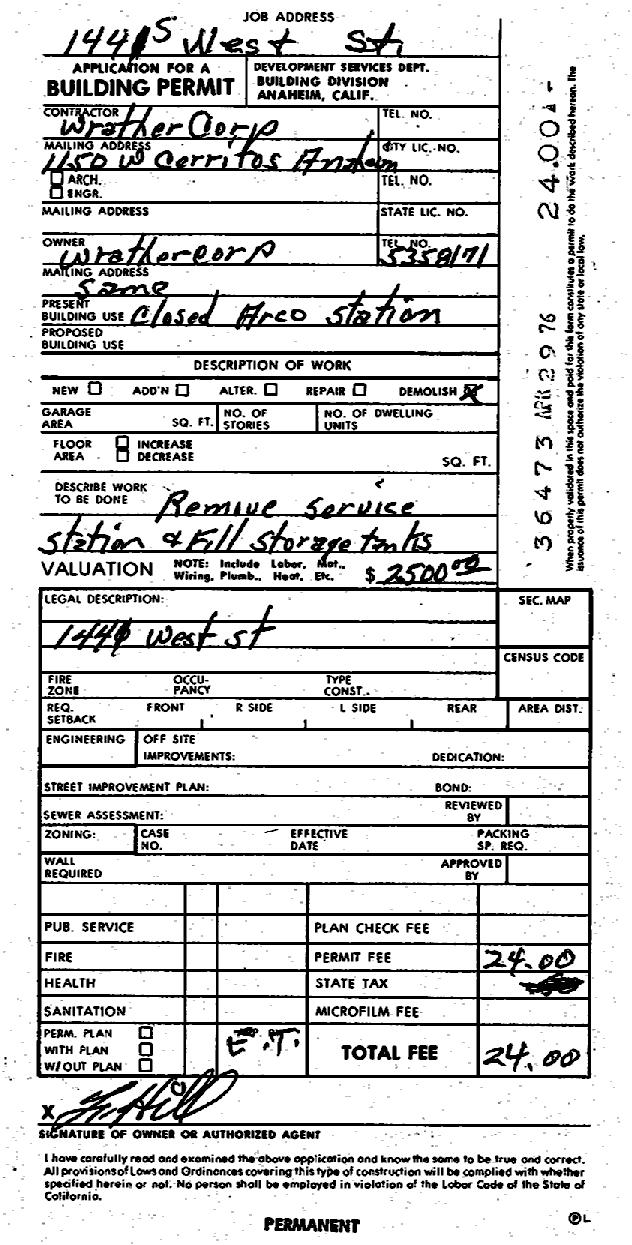 JOB ADDRESS
1441 S West St
APPLICATION FOR A
BUILDING PERMIT
DEVELOPMENT SERVICES DEPT.
BUILDING DIVISION
ANAHEIM, CALIF.
CONTRACTOR TEL. NO.
Wrather Corp
MAILING ADDRESS CITY LIC. NO.
1150 W Cerritos Anaheim
ARCH. TEL. NO.
ENGR.
MAILING ADDRESS STATE LIC. NO.
OWNER TEL. NO.
Wrather Corp 5358171
MAILING ADDRESS
same
PRESENT
BUILDING USE Closed Arco Station
PROPOSED
BUILDING USE
DESCRIPTION OF WORK
NEW ADD'N ALTER. REPAIR DEMOLISH X
GARAGE AREA SQ. FT. NO. OF STORIES NO. OF DWELLING UNITS
FLOOR AREA INCREASE
DECREASE SQ. FT.
DESCRIBE WORK
TO BE DONE Remive Service
station & Fill storage tanks
VALUATION NOTE: Include Labor, Mat., Wiring, Plumb., Heat, Etc. $ 2500.00
LEGAL DESCRIPTION: SEC. MAP
1441 West st
CENSUS CODE
FIRE ZONE OCCU-PANCY TYPE CONST.
REQ. SETBACK FRONT R SIDE L SIDE REAR AREA DIST.
ENGINEERING OFF SITE
IMPROVEMENTS: DEDICATION:
STREET IMPROVEMENT PLAN: BOND:
SEWER ASSESSMENT: REVIEWED BY
ZONING: CASE NO. EFFECTIVE DATE PACKING SP. REQ.
WALL REQUIRED APPROVED BY
PUB. SERVICE PLAN CHECK FEE
FIRE PERMIT FEE 24.00
HEALTH STATE TAX
SANITATION MICROFILM FEE
PERM. PLAN
WITH PLAN E.T. TOTAL FEE 24.00
W/OUT PLAN
X
SIGNATURE OF OWNER OR AUTHORIZED AGENT
I have carefully read and examined the above application and know the same to be true and correct.
All provisions of Laws and Ordinances covering this type of construction will be complied with whether
specified herein or not. No person shall be employed in violation of the Labor Code of the State of
California.
PERMANENT
36473 APR 29 76 24.00
When properly validated in this space and paid for this form constitutes a permit to do the work described hereon. The
issuance of this permit does not authorize the violation of any state or local law.